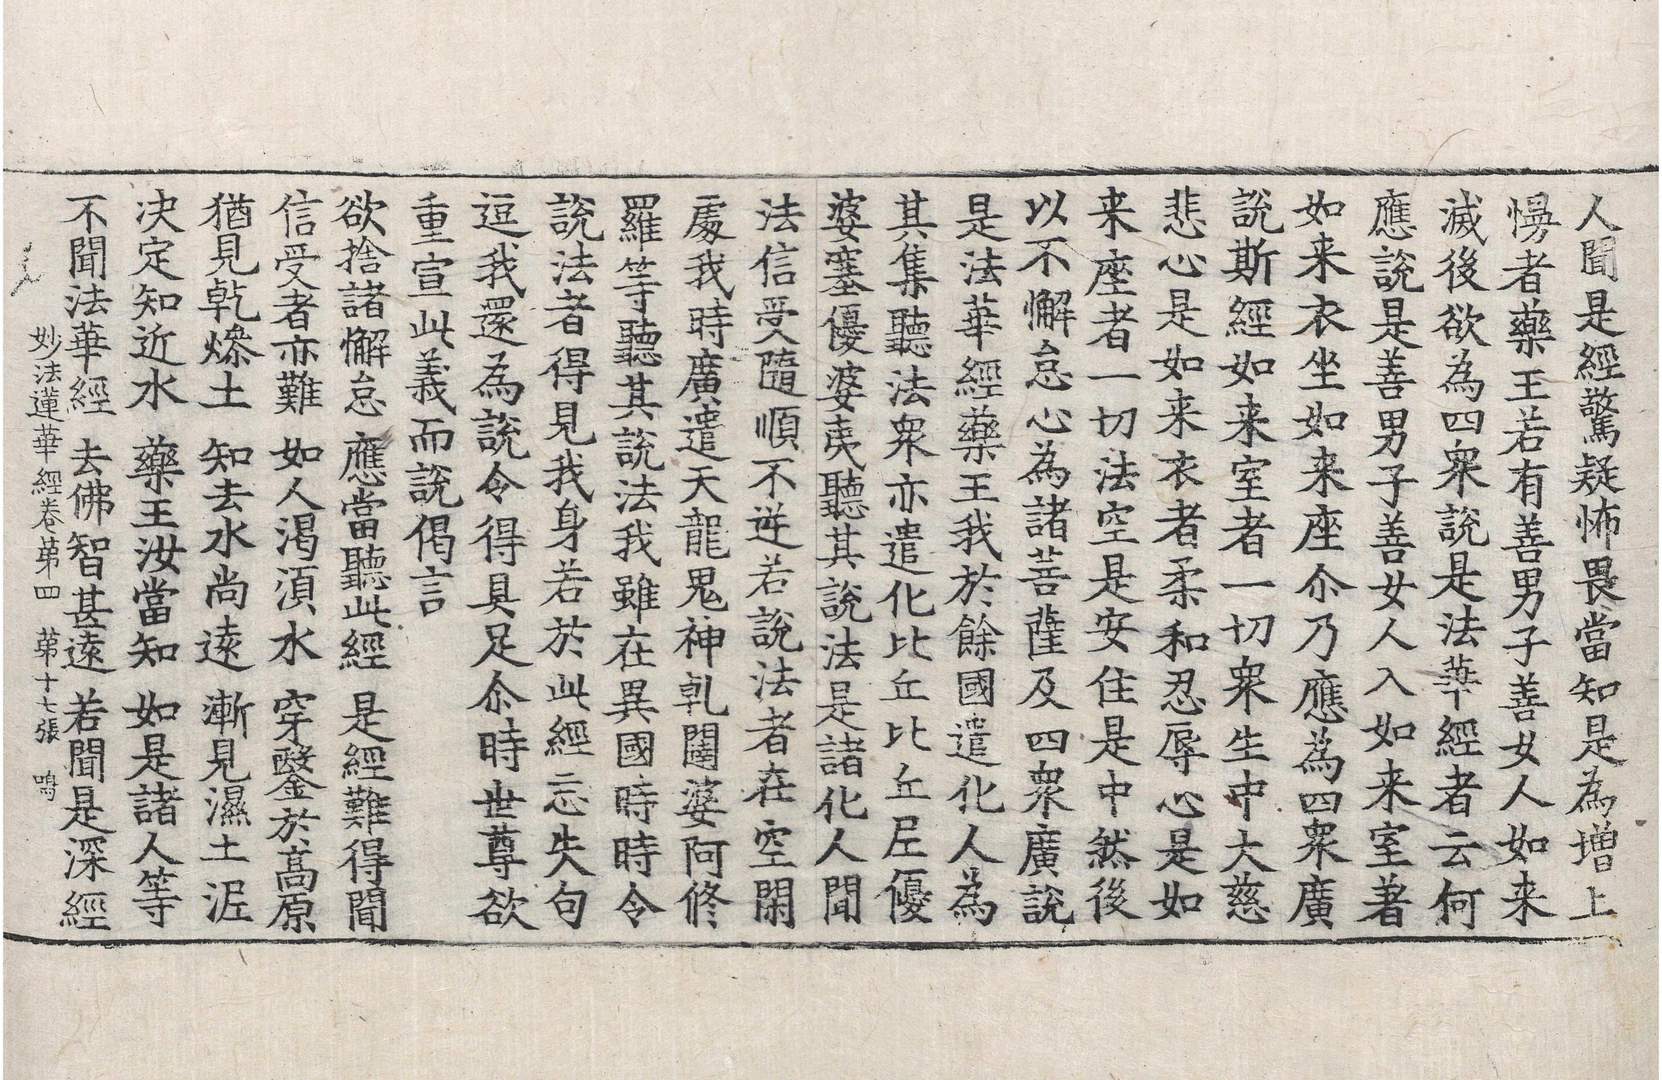 人聞是經驚疑怖畏當知是為增上
慢者藥王若有善男子善女人如来
滅後欲為四衆說是法華經者云何
應說是善男子善女人入如来室著
如来衣坐如来座尒乃應為四衆廣
說斯經如来室者一切衆生中大慈
悲心是如来衣者柔和忍辱心是如
来座者一切法空是安住是中然後
以不懈怠心為諸菩薩及四衆廣說
是法華經藥王我於餘國遣化人為
其集聽法衆亦遣化比丘比丘尼優
婆塞優婆夷聽其說法是諸化人聞
法信受隨順不逆若說法者在空閑
處我時廣遣天龍鬼神乹闥婆阿修
羅等聽其說法我雖在異國時時令
說法者得見我身若於此經忘失句
逗我還為說令得具足尒時世尊欲
重宣此義而說偈言
欲捨諸懈怠 應當聽此經 是經難得聞
信受者亦難 如人渴湏水 穿鑿於高原
猶見乹燥土 知去水尚遠 漸見濕土泥
决定知近水 藥王汝當知 如是諸人等
不聞法華經 去佛智甚遠 若聞是深經
妙法蓮華經卷苐四 苐十七張 鳴